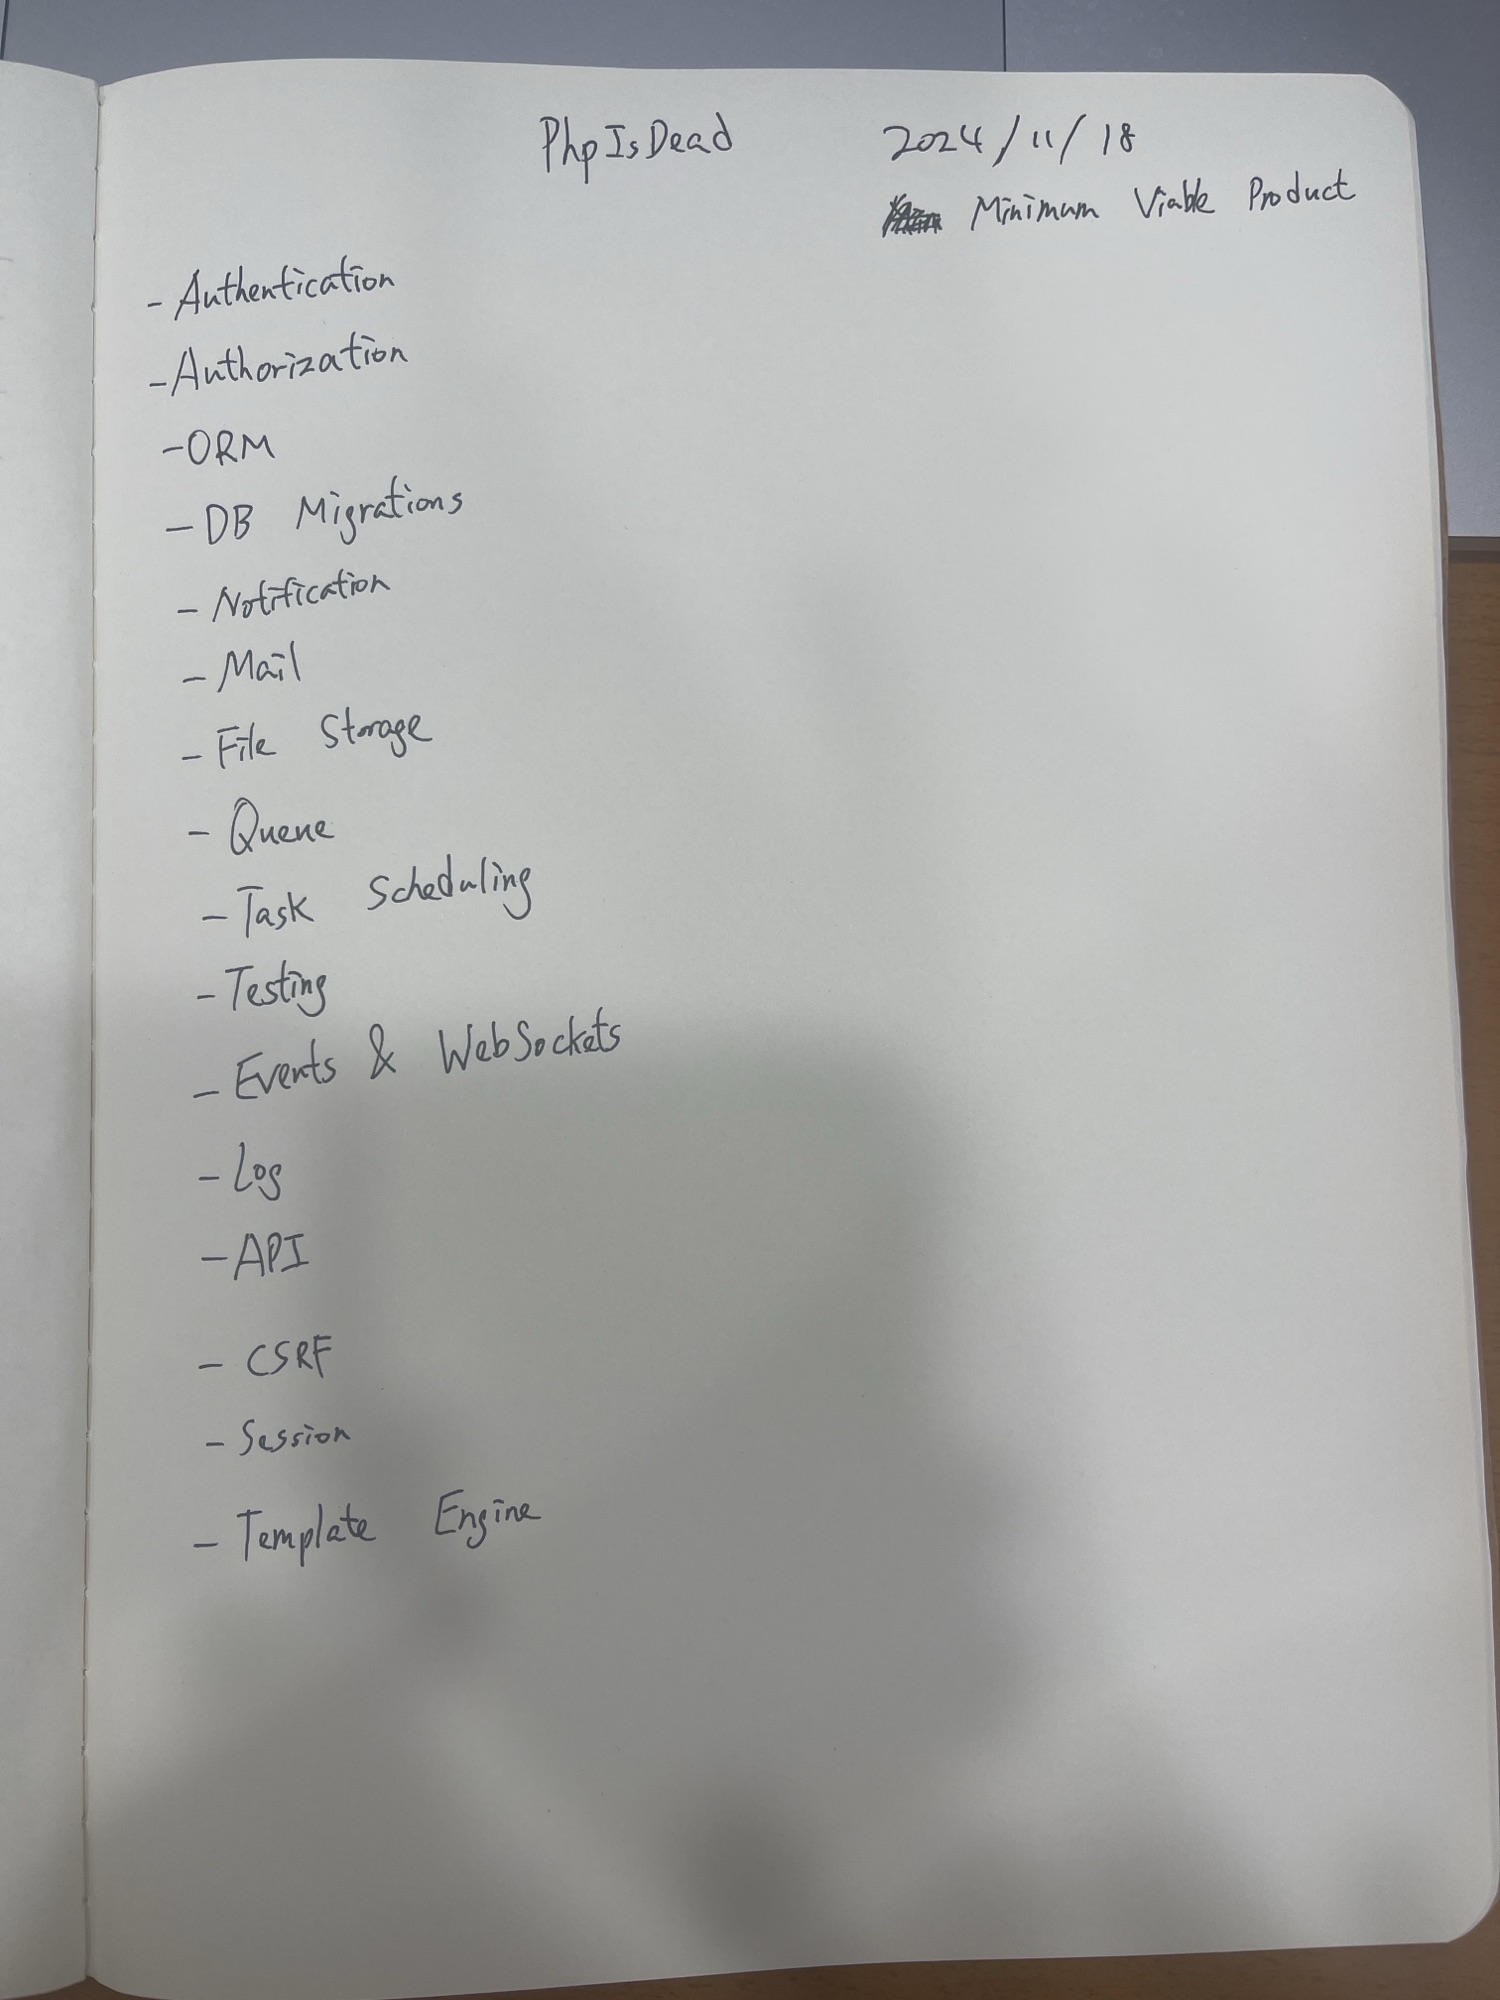 PhpIsDead 2024/11/18
Minimum Viable Product
- Authentication
- Authorization
- ORM
- DB Migrations
- Notification
- Mail
- File Storage
- Queue
- Task Scheduling
- Testing
- Events & WebSockets
- Log
- API
- CSRF
- Session
- Template Engine